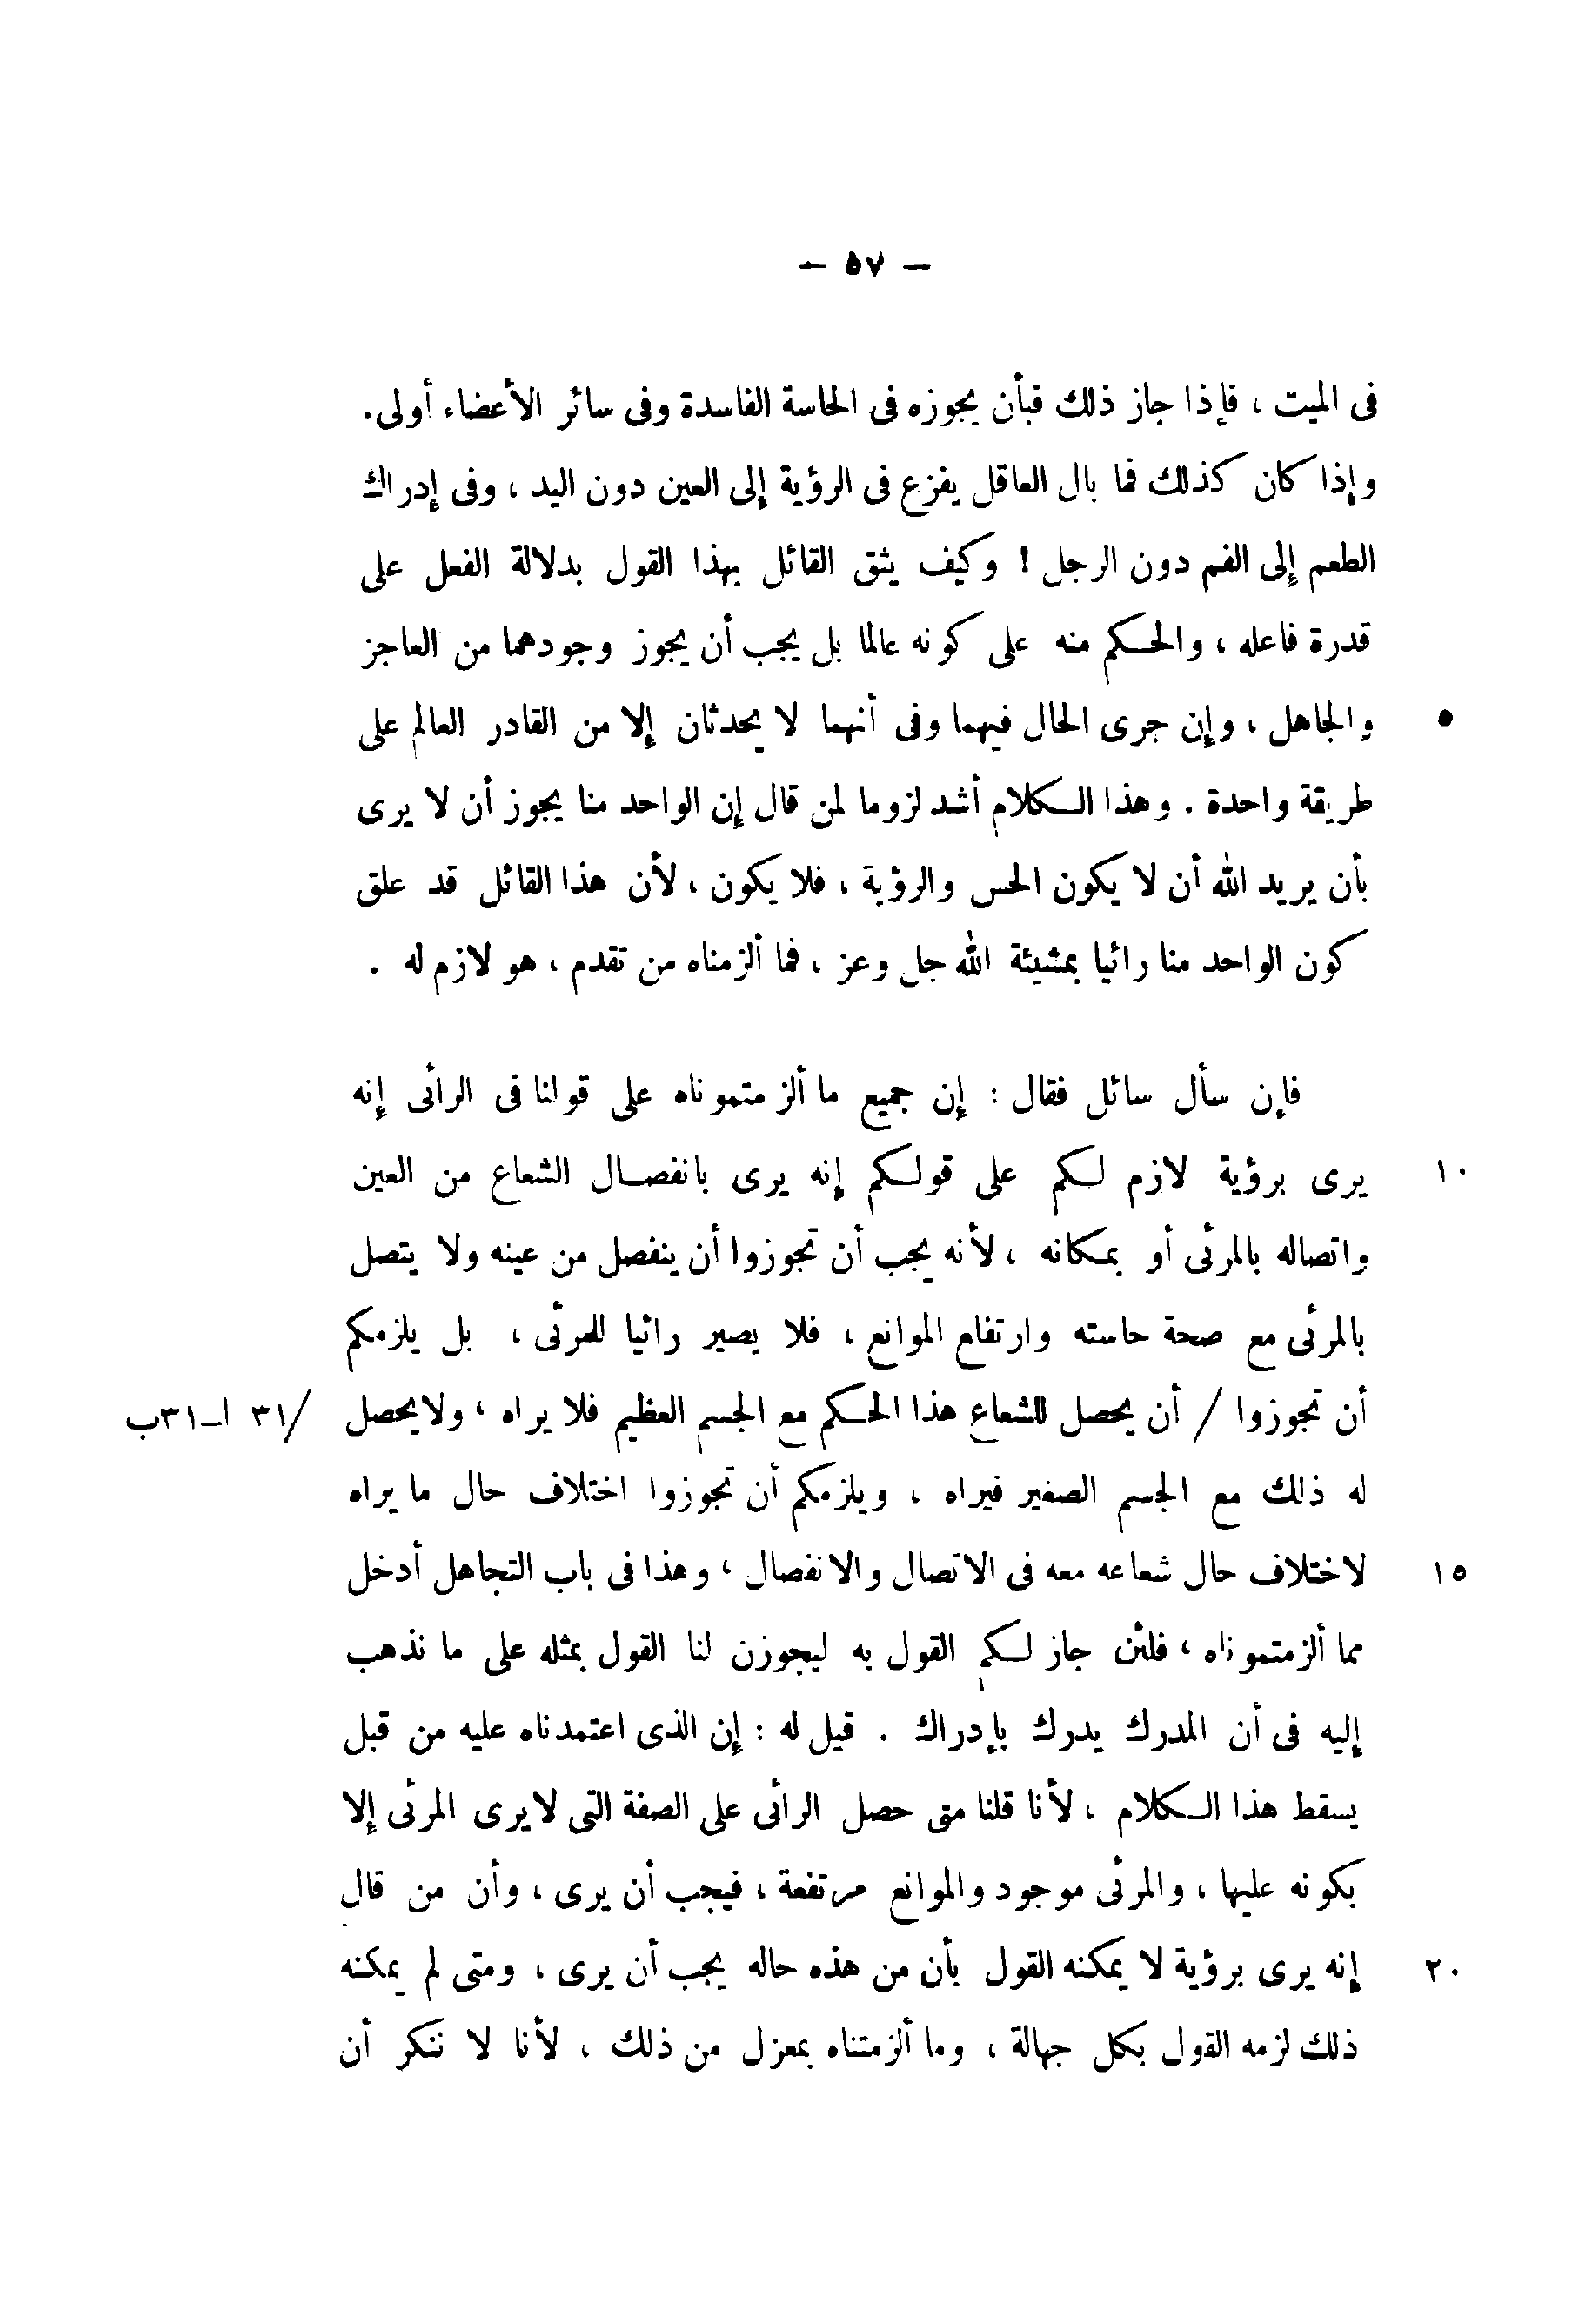 — ٥٧ —
فى الميت ، فإذا جاز ذلك فبأن يجوزه فى الحاسة الفاسدة وفى سائر الأعضاء أولى.
وإذا كان كذلك فما بال العاقل يفزع فى الرؤية إلى العين دون اليد ، وفى إدراك
الطعم إلى الفم دون الرجل ! وكيف يثق القائل بهذا القول بدلالة الفعل على
قدرة فاعله ، والحكم منه على كونه عالما بل يجب أن يجوز وجودهما من العاجز
٥ والجاهل ، وإن جرى الحال فيهما وفى أنهما لا يحدثان إلا من القادر العالم على
طريقة واحدة . وهذا الكلام أشد لزوما لمن قال إن الواحد منا يجوز أن لا يرى
بأن يريد الله أن لا يكون الحس والرؤية ، فلا يكون ، لأن هذا القائل قد علق
كون الواحد منا رائيا بمشيئة الله جل وعز ، فما ألزمناه من تقدم ، هو لازم له .
فإن سأل سائل فقال : إن جميع ما ألزمتموناه على قولنا فى الرائى إنه
١٠ يرى برؤية لازم لكم على قولكم إنه يرى بانفصال الشعاع من العين
واتصاله بالمرئى أو بمكانه ، لأنه يجب أن تجوزوا أن ينفصل من عينه ولا يتصل
بالمرئى مع صحة حاسته وارتفاع الموانع ، فلا يصير رائيا للمرئى ، بل يلزمكم
أن تجوزوا / أن يحصل للشعاع هذا الحكم مع الجسم العظيم فلا يراه ، ولا يحصل /٣١ ا_٣١ب
له ذلك مع الجسم الصغير فيراه ، ويلزمكم أن تجوزوا اختلاف حال ما يراه
١٥ لاختلاف حال شعاعه معه فى الاتصال والانفصال ، وهذا فى باب التجاهل أدخل
مما ألزمتموناه ، فلئن جاز لكم القول به ليجوزن لنا القول بمثله على ما نذهب
إليه فى أن المدرك يدرك بإدراك . قيل له : إن الذى اعتمدناه عليه من قبل
يسقط هذا الكلام ، لأنا قلنا متى حصل الرائى على الصفة التى لا يرى المرئى إلا
بكونه عليها ، والمرئى موجود والموانع مرتفعة ، فيجب أن يرى ، وأن من قال
٢٠ إنه يرى برؤية لا يمكنه القول بأن من هذه حاله يجب أن يرى ، ومتى لم يمكنه
ذلك لزمه القول بكل جهالة ، وما ألزمتناه بمعزل من ذلك ، لأنا لا ننكر أن